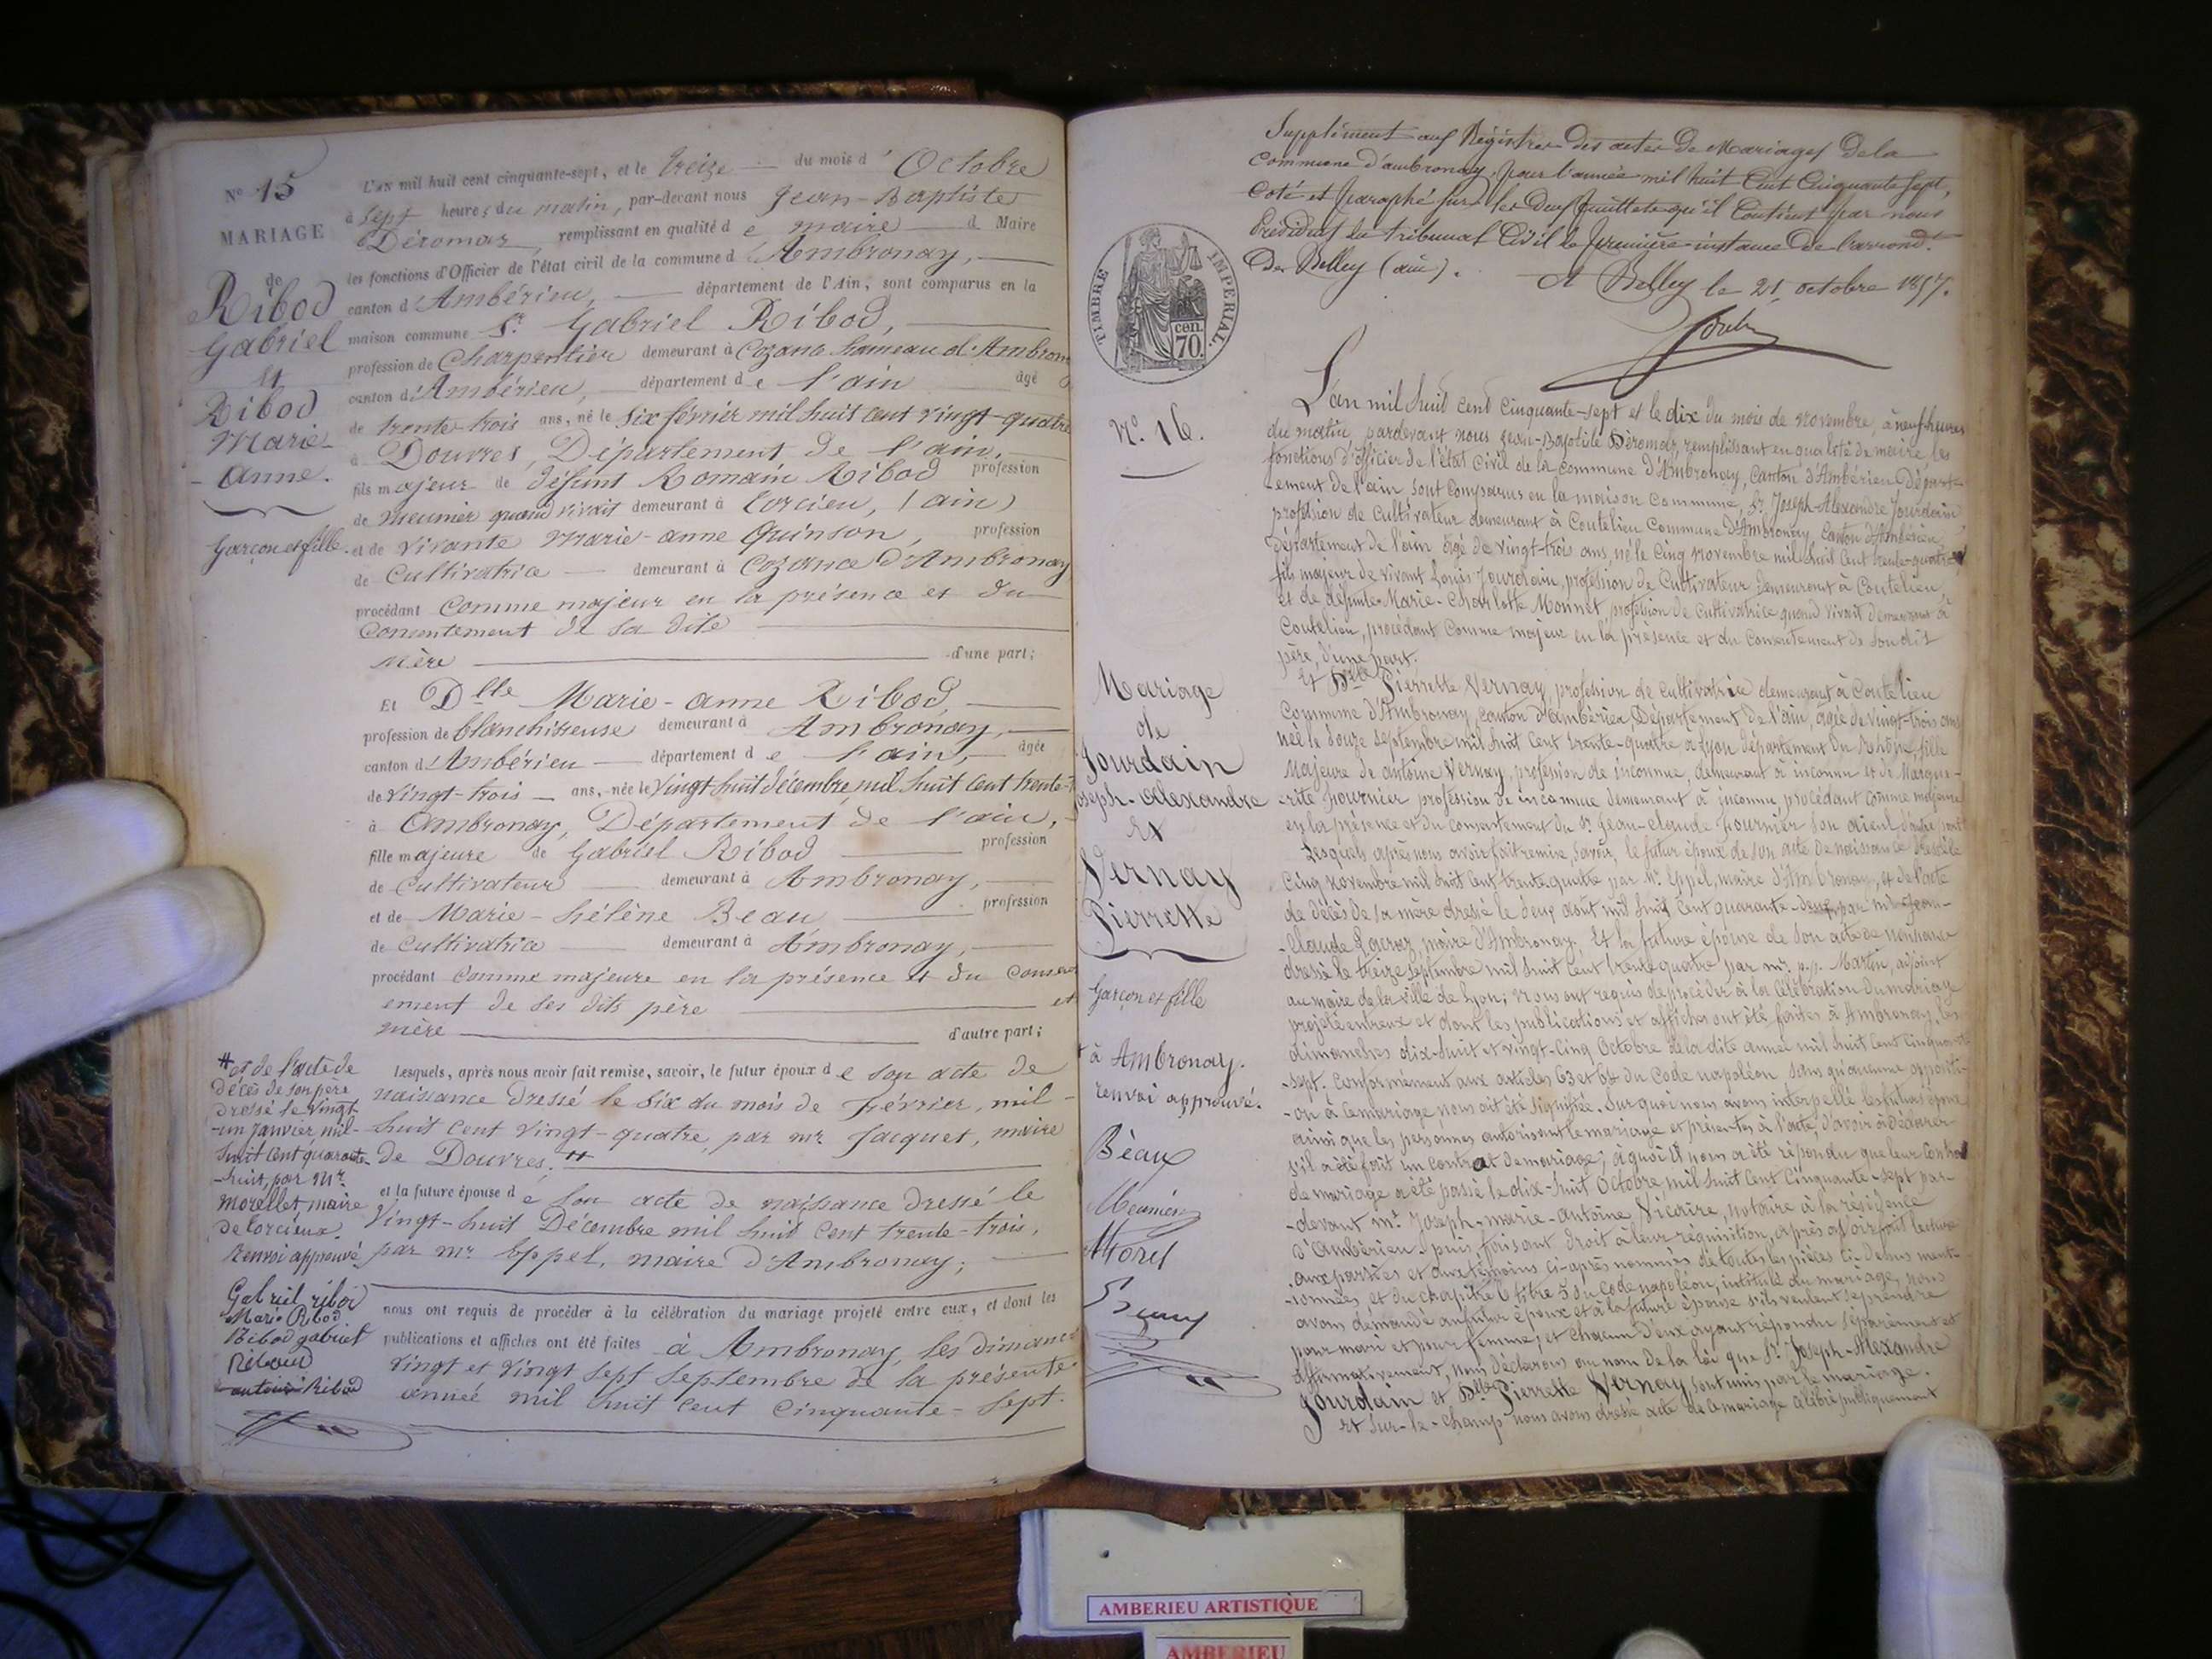 N.º 15
MARIAGE
de
Ribod
Gabriel
et
Ribod
Marie-
-Anne.
Garçon et fille.
L'an mil huit cent cinquante-sept, et le treize du mois d'Octobre
à sept heures du matin, par-devant nous Jean-Baptiste
Déromas, remplissant en qualité de maire d Maire
les fonctions d'Officier de l'état civil de la commune d'Ambronay,
canton d'Ambérieu, département de l'Ain, sont comparus en la
maison commune Sr. Gabriel Ribod,
profession de Charpentier demeurant à Cozance hameau d'Ambron
canton d'Ambérieu, département de l'ain âgé
de trente-trois ans, né le six février mil huit cent vingt-quatre
à Douvres, Département de l'ain,
fils majeur de défunt Romain Ribod profession
de meunier quand vivait demeurant à Torcieu, (ain)
et de vivante Marie-anne Quinson, profession
de Cultivatrice demeurant à Cozance d'Ambronay
procédant comme majeur en la présence et du
Consentement de sa dite
mère d'une part;
Et Dlle Marie-anne Ribod,
profession de blanchisseuse demeurant à Ambronay,
canton d'Ambérieu département de l'ain, âgée
de vingt-trois ans, née le vingt huit décembre mil huit cent trente-
à Ambronay, Département de l'ain,
fille majeure de Gabriel Ribod profession
de Cultivateur demeurant à Ambronay,
et de Marie-hélène Beau profession
de Cultivatrice demeurant à Ambronay,
procédant comme majeure en la présence et du Consen
ement de ses dits père et
mère d'autre part;
Lesquels, après nous avoir fait remise, savoir, le futur époux de son acte de
naissance dressé le six du mois de février, mil-
huit cent vingt-quatre, par mr. Jacquet, maire
de Douvres. #
et la future épouse de son acte de naissance dressé le
vingt-huit Décembre mil huit cent trente-trois,
par mr. Eppel, maire d'Ambronay;
nous ont requis de procéder à la célébration du mariage projeté entre eux, et dont les
publications et affiches ont été faites à Ambronay, les dimanc
vingt et vingt sept septembre de la présente
année mil huit cent cinquante-sept.
# et de l'acte de
décès de son père
dressé le vingt
-un janvier mil-
huit cent quarante-
-huit, par Mr.
Morellet, maire
de torcieux.
Renvoi approuvé
Gabriel ribod
Marie Ribod
Ribod gabriel
Ribod
Supplément aux Régistres des actes de Mariages de la
commune d'ambronay, pour l'année mil huit Cent Cinquante sept,
coté et paraphé sur les deux feuillets qu'il Contient par nous
Président du tribunal Civil de première instance de l'arrond.t
de Belley (ain).
A Belley le 21 octobre 1857.
TIMBRE IMPERIAL.
cen.
70.
N.º 16.
Mariage
de
Jourdain
Joseph-Alexandre
et
Vernay
Pierrette
Garçon et fille
à Ambronay.
renvoi approuvé.
Béaux
Meunier
Morel
L'an mil huit cent cinquante-sept et le dix du mois de novembre, à neuf heures
du matin, pardevant nous Jean-Baptiste Déromas, remplissant en qualité de maire les
fonctions d'officier de l'état civil de la commune d'Ambronay, canton d'Ambérieu Départ-
-ement de l'ain, sont comparus en la maison commune, Sr. Joseph-Alexandre Jourdain
profession de cultivateur demeurant à Coutelieu Commune d'Ambronay, canton d'Ambérieu,
Département de l'ain âgé de vingt-trois ans, né le cinq novembre mil huit cent trente-quatre,
fils majeur de vivant Louis Jourdain, profession de cultivateur demeurant à Coutelieu,
et de défunte Marie-Charlotte Monnet profession de cultivatrice quand vivait demeurant à
Coutelieu, procédant comme majeur en la présence et du consentement de son dit
père, d'une part.
Et Dlle Pierrette Vernay, profession de cultivatrice demeurant à Coutelieu
commune d'Ambronay, canton d'ambérieu, Département de l'ain, âgée de vingt-trois ans
née le douze septembre mil huit cent trente-quatre à Lyon département du Rhône, fille
majeure de antoine Vernay, profession de inconnue, demeurant à inconnu et de Margue-
-rite fournier profession de inconnue demeurant à inconnu, procédant comme majeure
en la présence et du consentement du Sr. Jean-claude fournier son aïeul d'autre part
Lesquels après nous avoir fait remise, savoir, le futur époux de son acte de naissance dressé le
cinq novembre mil huit cent trente quatre par Mr. Eppel, maire d'Ambronay, et de l'acte
de décès de sa mère dressé le deux aout mil huit cent quarante-deux par mr. Jean-
-Claude maire d'Ambronay. Et la future épouse de son acte de naissance
dressé le treize septembre mil huit cent trente quatre par mr. Martin, adjoint
au maire de la ville de Lyon; nous ont requis de procéder à la célébration du mariage
projeté entr'eux et dont les publications et affiches ont été faites à Ambronay, les
dimanches dix-huit et vingt-cinq Octobre de la dite année mil huit cent cinquante
-sept. Conformément aux articles 63 et 64 du Code napoléon sans qu'aucune oppositi-
-on à ce mariage nous ait été signifiée. Sur quoi nous avons interpellé les futurs époux
ainsi que les personnes autorisant le mariage et présentes à l'acte, d'avoir à déclarer
s'il a été fait un contrat de mariage; à quoi il nous a été répondu que leur contrat
de mariage a été passé le dix-huit Octobre mil huit cent cinquante-sept par-
-devant mr. Joseph-marie-antoine Vicaire, notaire à la résidence
d'Ambérieu. puis, faisant droit à leur réquisition, après avoir fait lecture
aux parties et aux témoins ci-après nommés de toutes les pièces ci-dessus ment-
-ionnées et du chapitre 6 titre 5 du Code napoléon, intitulé du mariage, nous
avons demandé au futur époux et à la future épouse s'ils veulent se prendre
pour mari et pour femme; et chacun d'eux ayant répondu séparément et
affirmativement, nous déclarons au nom de la loi que Sr. Joseph-Alexandre
Jourdain et Dlle Pierrette Vernay, sont unis par le mariage.
Et sur-le-champ nous avons dressé acte de ce mariage célébré publiquement
AMBERIEU ARTISTIQUE
AMBERIEU